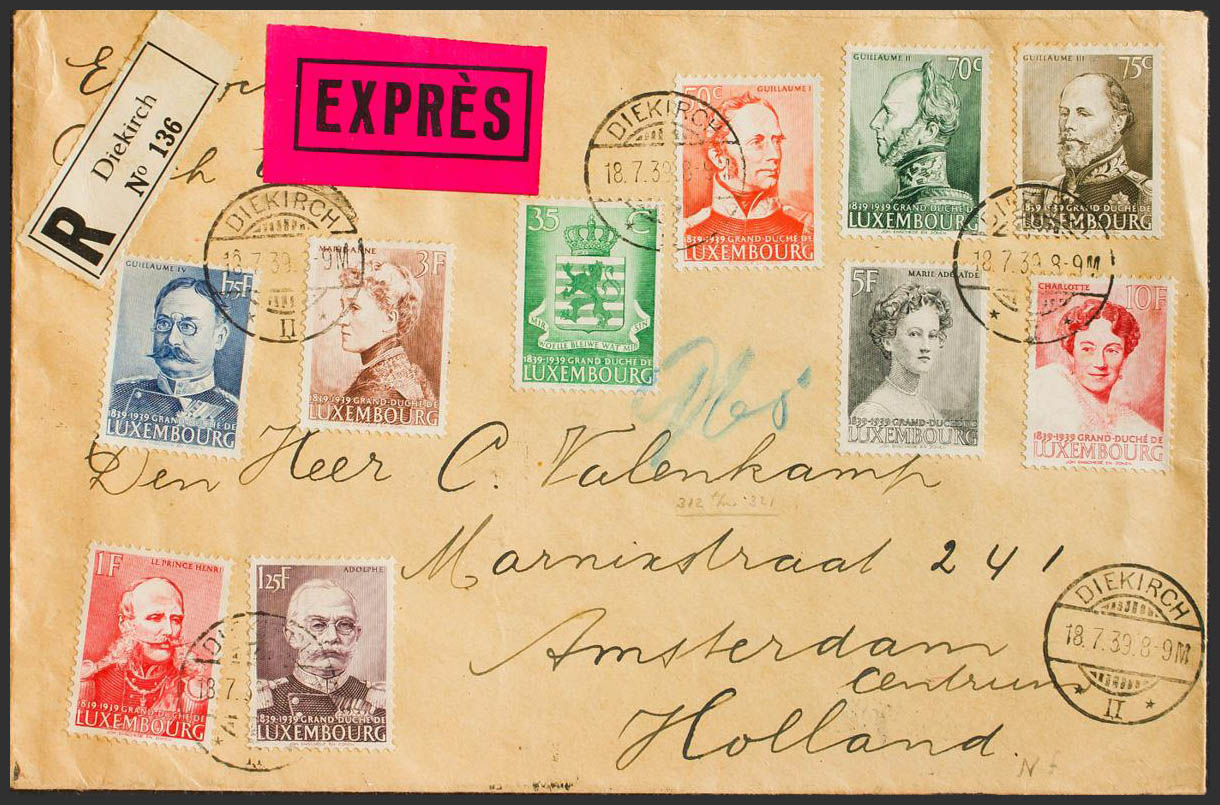 EXPRÈS
R
Diekirch
Nº 136
DIEKIRCH
18.7.39.8-9M
II
GUILLAUME IV
1,75F
1839·1939 GRAND-DUCHÉ DE
LUXEMBOURG
MARIE-ANNE
3F
1839·1939 GRAND-DUCHÉ DE
LUXEMBOURG
35 C
MIR WOELLE BLEIWE WAT MIR SIN
1839·1939 GRAND DUCHÉ DE
LUXEMBOURG
DIEKIRCH
18.7.39.8-9M
50c
GUILLAUME I
1839·1939 GRAND-DUCHÉ DE
LUXEMBOURG
GUILLAUME II
70c
1839·1939 GRAND-DUCHÉ DE
LUXEMBOURG
JOH. ENSCHEDÉ EN ZONEN
GUILLAUME III
75c
1839·1939 GRAND-DUCHÉ DE
LUXEMBOURG
18.7.39.8-9M
5F
MARIE ADÉLAÏDE
1839·1939 GRAND-DUCHÉ DE
LUXEMBOURG
CHARLOTTE
10F
1839·1939 GRAND-DUCHÉ DE
LUXEMBOURG
JOH. ENSCHEDÉ EN ZONEN
Den Heer C. Valenkamp
312 t/m 321
Marnixstraat 241
Amsterdam
Centrum
Holland.
1F
LE PRINCE HENRI
1839·1939 GRAND-DUCHÉ DE
LUXEMBOURG
1,25F
ADOLPHE
1839·1939 GRAND DUCHÉ DE
LUXEMBOURG
JOH. ENSCHEDÉ EN ZONEN
18.7.3
DIEKIRCH
18.7.39.8-9M
II